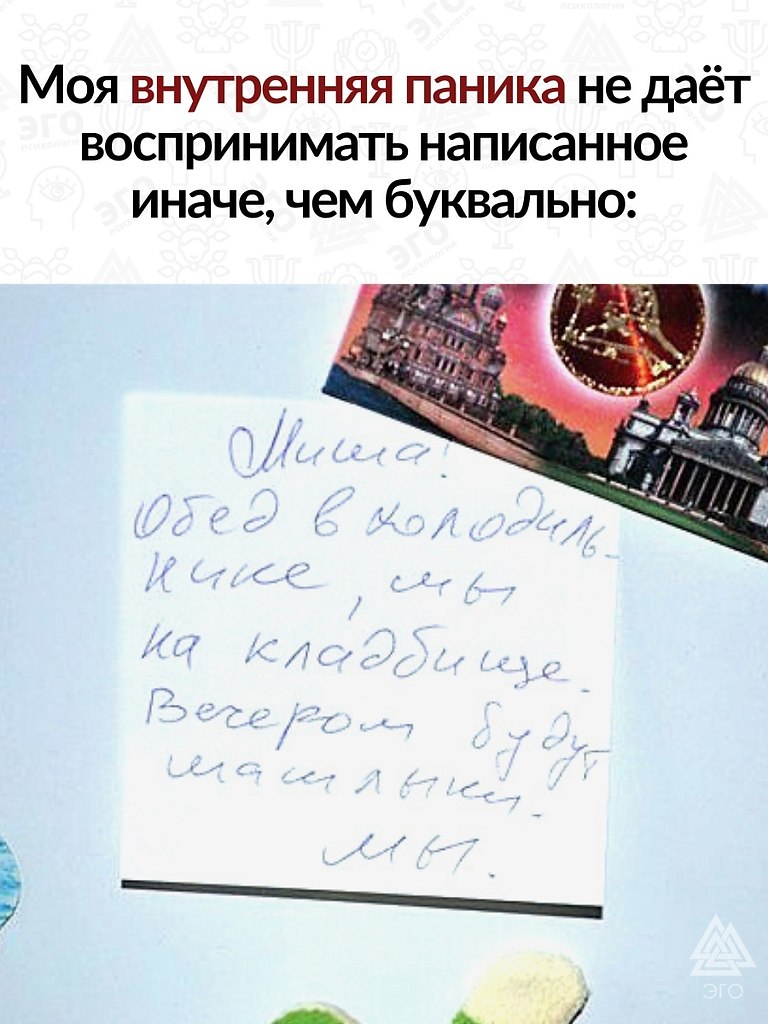 Моя внутренняя паника не даёт
воспринимать написанное
иначе, чем буквально:
Миша!
Обед в холодиль-
нике, мы
на кладбище.
Вечером будут
шашлыки.
мы.
ЭГО